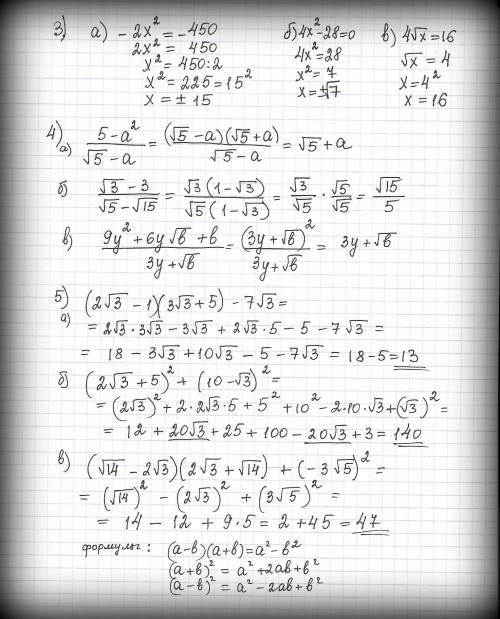 3) а) - 2x² = -450   б) 4x² - 28 = 0   в) 4√x = 16
2x² = 450   4x² = 28   √x = 4
x² = 450 : 2   x² = 7   x = 4²
x² = 225 = 15²   x = ±√7   x = 16
x = ± 15
4) а) (5 - a²)/(√5 - a) = ((√5 - a)(√5 + a))/(√5 - a) = √5 + a
б) (√3 - 3)/(√5 - √15) = (√3 (1 - √3))/(√5 (1 - √3)) = √3/√5 · √5/√5 = √15/5
в) (9y² + 6y√в + в)/(3y + √в) = (3y + √в)²/(3y + √в) = 3y + √в
5) а) (2√3 - 1)(3√3 + 5) - 7√3 =
= 2√3 · 3√3 - 3√3 + 2√3 · 5 - 5 - 7√3 =
= 18 - 3√3 + 10√3 - 5 - 7√3 = 18 - 5 = 13
б) (2√3 + 5)² + (10 - √3)² =
= (2√3)² + 2 · 2√3 · 5 + 5² + 10² - 2 · 10 · √3 + (√3)² =
= 12 + 20√3 + 25 + 100 - 20√3 + 3 = 140
в) (√14 - 2√3)(2√3 + √14) + (- 3√5)² =
= (√14)² - (2√3)² + (3√5)² =
= 14 - 12 + 9 · 5 = 2 + 45 = 47
формулы : (a - в)(a + в) = a² - в²
(a + в)² = a² + 2aв + в²
(a - в)² = a² - 2aв + в²